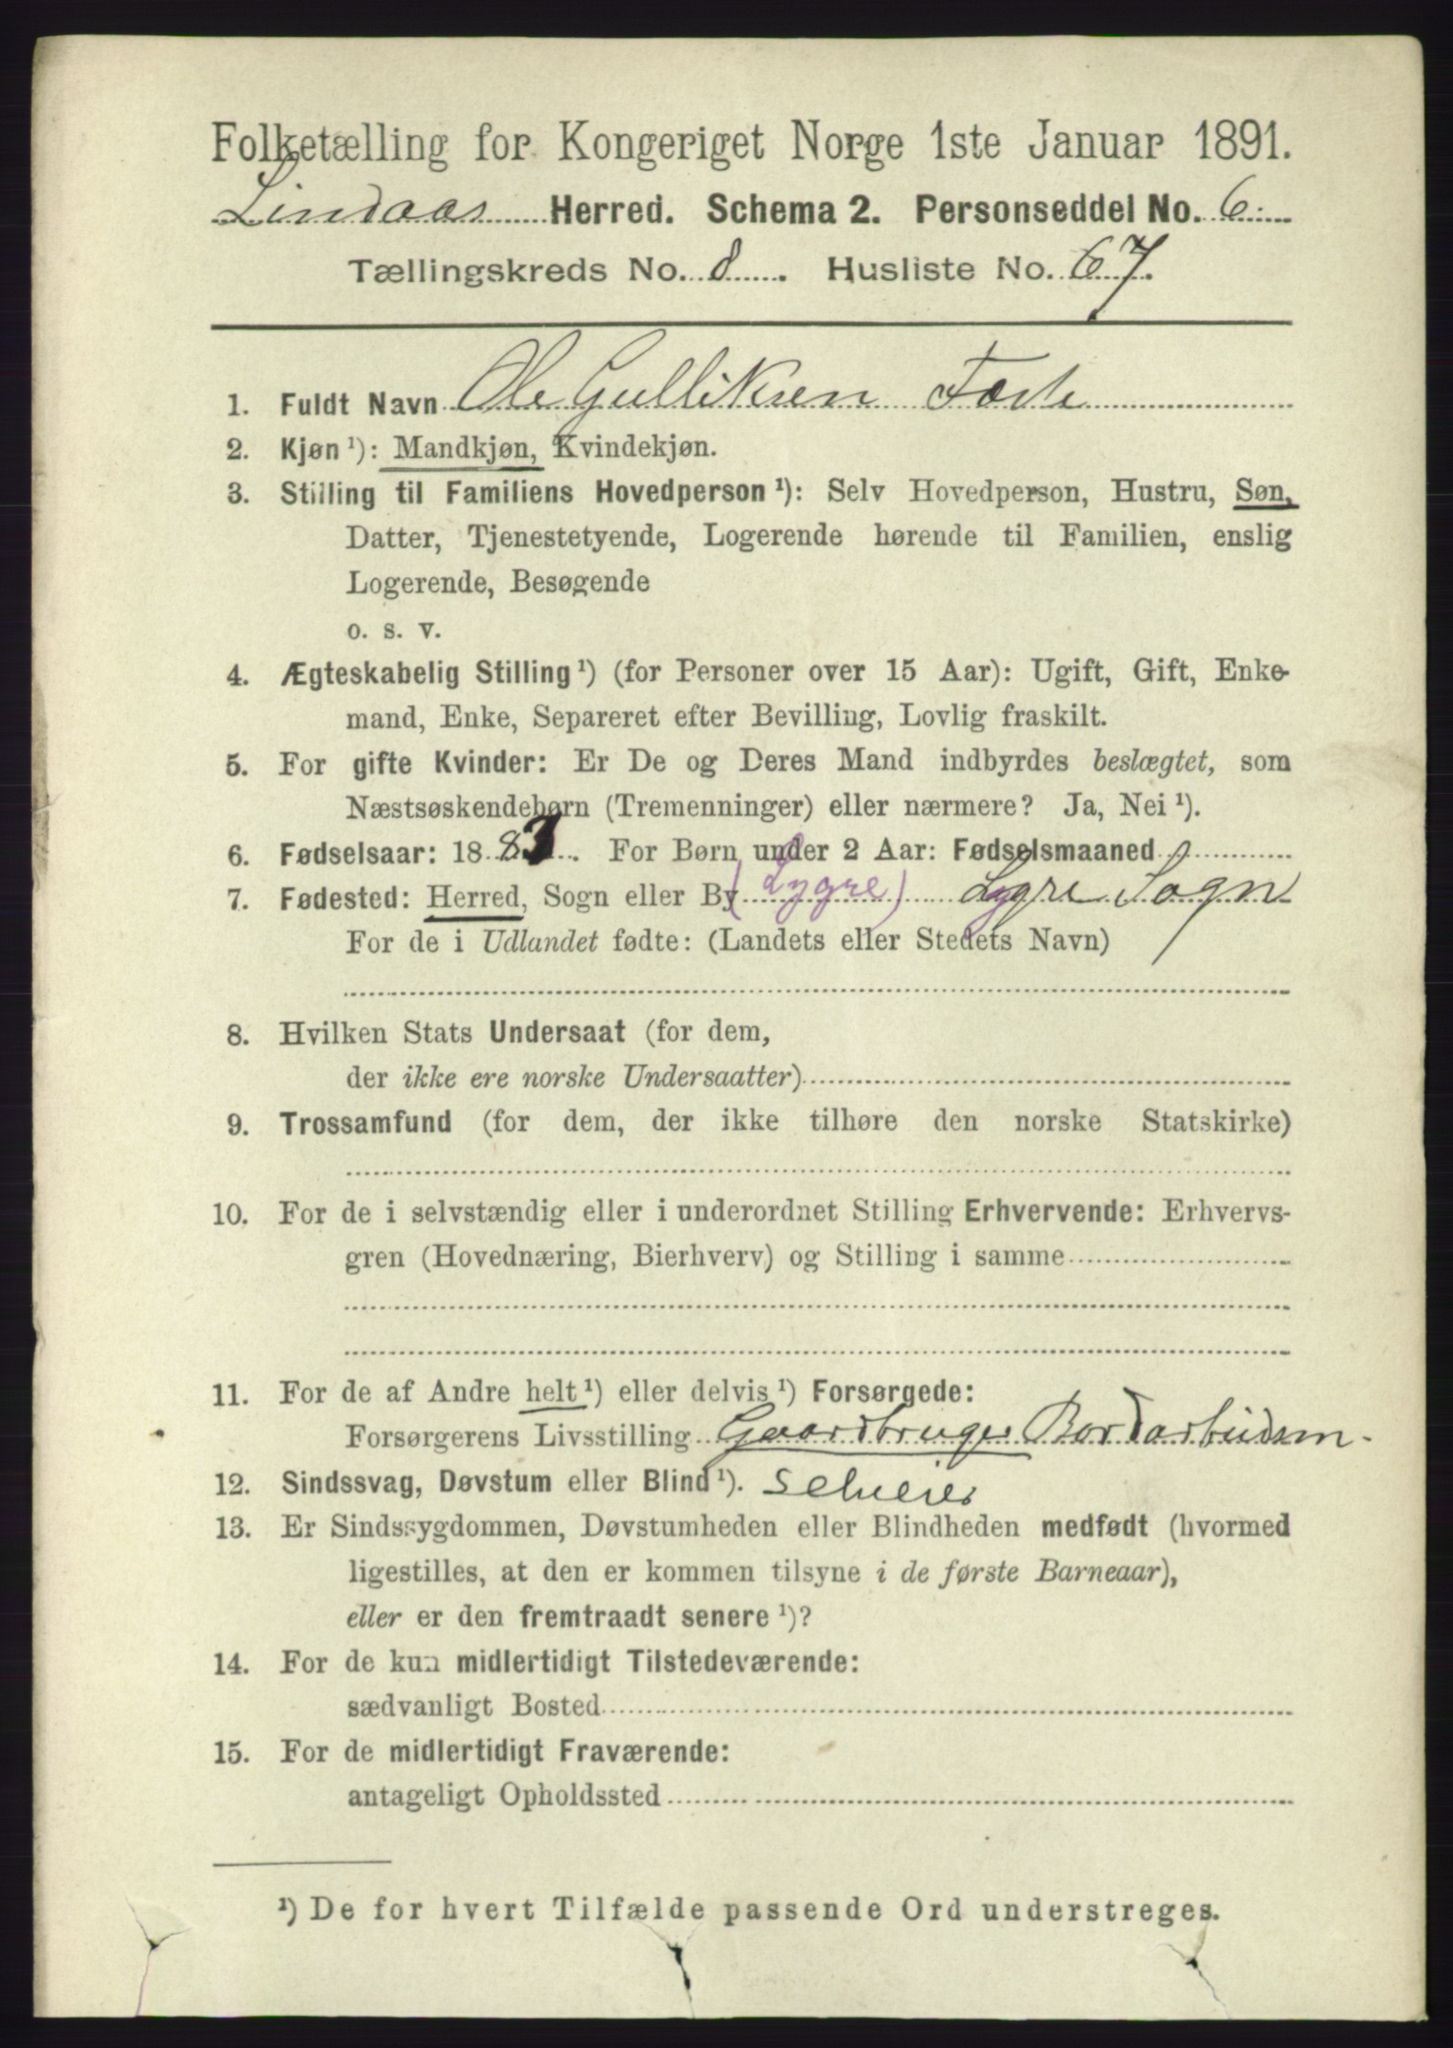 Folketælling for Kongeriget Norge 1ste Januar 1891.
Lindaas Herred. Schema 2. Personseddel No. 6.
Tællingskreds No. 8. Husliste No. 67.
1. Fuldt Navn Ole Gulliksen
2. Kjøn ¹): Mandkjøn, Kvindekjøn.
3. Stilling til Familiens Hovedperson ¹): Selv Hovedperson, Hustru, Søn,
Datter, Tjenestetyende, Logerende hørende til Familien, enslig
Logerende, Besøgende
o. s. v.
4. Ægteskabelig Stilling ¹) (for Personer over 15 Aar): Ugift, Gift, Enke-
mand, Enke, Separeret efter Bevilling, Lovlig fraskilt.
5. For gifte Kvinder: Er De og Deres Mand indbyrdes beslægtet, som
Næstsøskendebørn (Tremenninger) eller nærmere? Ja, Nei ¹).
6. Fødselsaar: 1883. For Børn under 2 Aar: Fødselsmaaned
7. Fødested: Herred, Sogn eller By (Lygre) Lygre Sogn
For de i Udlandet fødte: (Landets eller Stedets Navn)
8. Hvilken Stats Undersaat (for dem,
der ikke ere norske Undersaatter)
9. Trossamfund (for dem, der ikke tilhøre den norske Statskirke)
10. For de i selvstændig eller i underordnet Stilling Erhvervende: Erhvervs-
gren (Hovednæring, Bierhverv) og Stilling i samme
11. For de af Andre helt ¹) eller delvis ¹) Forsørgede:
Forsørgerens Livsstilling Gaardbruger
12. Sindssvag, Døvstum eller Blind ¹).
13. Er Sindssygdommen, Døvstumheden eller Blindheden medfødt (hvormed
ligestilles, at den er kommen tilsyne i de første Barneaar),
eller er den fremtraadt senere ¹)?
14. For de kun midlertidigt Tilstedeværende:
sædvanligt Bosted
15. For de midlertidigt Fraværende:
antageligt Opholdssted
¹) De for hvert Tilfælde passende Ord understreges.